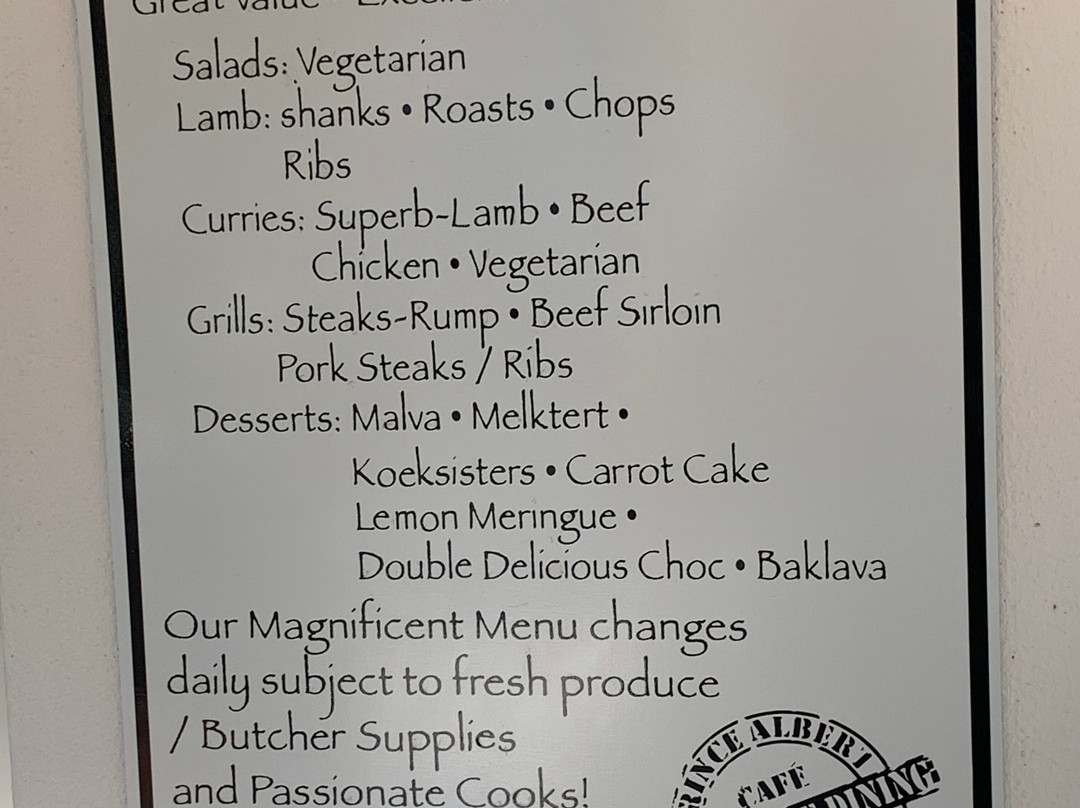 Great Value
Salads: Vegetarian
Lamb: shanks • Roasts • Chops
Ribs
Curries: Superb-Lamb • Beef
Chicken • Vegetarian
Grills: Steaks-Rump • Beef Sirloin
Pork Steaks / Ribs
Desserts: Malva • Melktert •
Koeksisters • Carrot Cake
Lemon Meringue •
Double Delicious Choc • Baklava
Our Magnificent Menu changes
daily subject to fresh produce
/ Butcher Supplies
and Passionate Cooks!
PRINCE ALBERT
CAFÉ
DINING